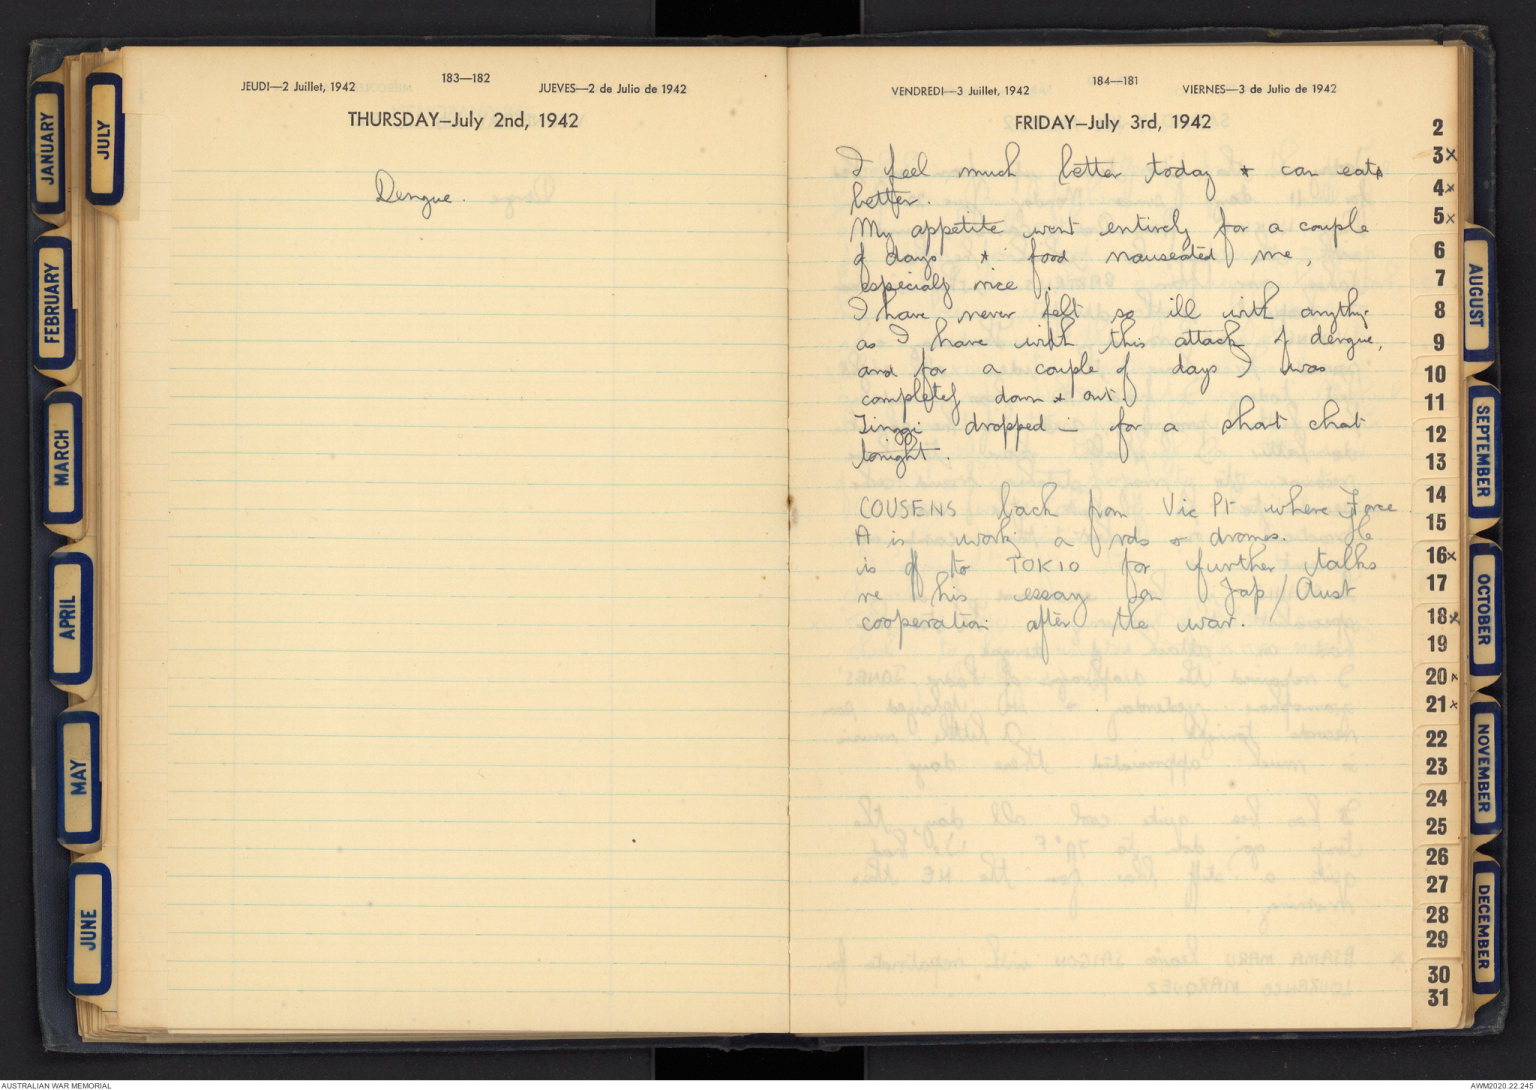 JEUDI—2 Juillet, 1942
183—182
JUEVES—2 de Julio de 1942
THURSDAY—July 2nd, 1942
Dengue.
VENDREDI—3 Juillet, 1942
184—181
VIERNES—3 de Julio de 1942
FRIDAY—July 3rd, 1942
I feel much better today & can eat
better.
My appetite went entirely for a couple
of days & food nauseated me,
especialy rice.
I have never felt so ill with anythg
as I have with this attack of dengue,
and for a couple of days I was
completely down & out.
Tinggi dropped in for a short chat
tonight.
COUSENS back from Vic Pt where Force
A is workg on rds & dromes. He
is off to TOKIO for further talks
re his essay on Jap/Aust
cooperation after the war.
JANUARY
FEBRUARY
MARCH
APRIL
MAY
JUNE
JULY
AUGUST
SEPTEMBER
OCTOBER
NOVEMBER
DECEMBER
2
3x
4x
5x
6
7
8
9
10
11
12
13
14
15
16x
17
18x
19
20x
21x
22
23
24
25
26
27
28
29
30
31
AUSTRALIAN WAR MEMORIAL
AWM2020.22.245